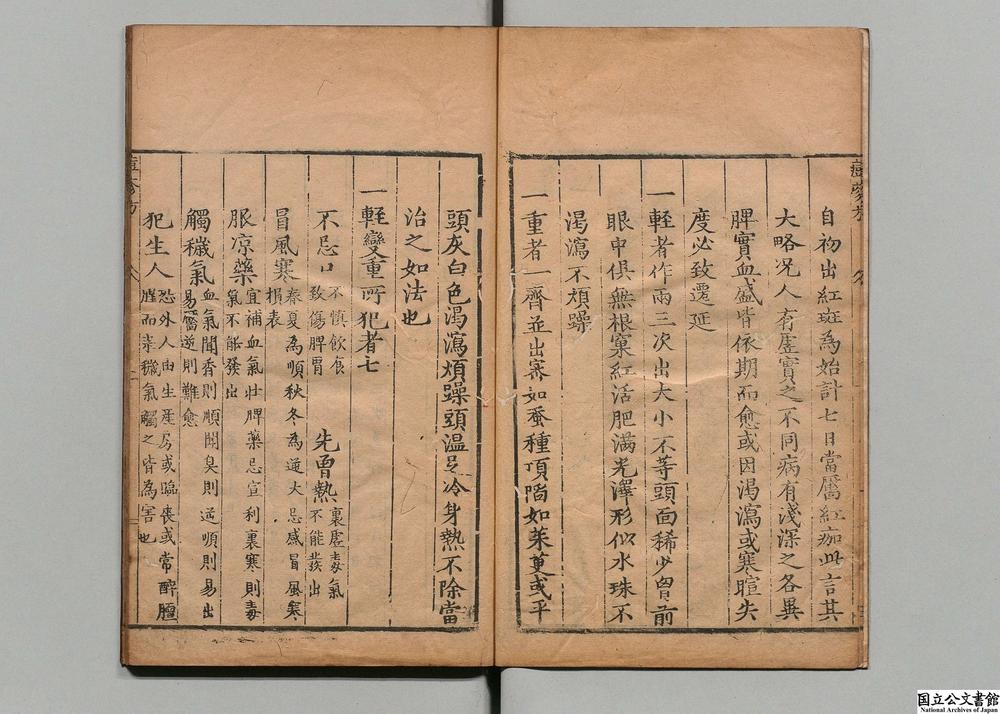 自初出紅斑為始計七日當靨紅痂此言其
大略況人有虛實之不同病有淺深之各異
脾實血盛皆依期而愈或因渴瀉或寒暄失
度必致遷延
一軽者作兩三次出大小不等頭面稀少胷前
眼中俱無根窠紅活肥滿光澤形似水珠不
渴瀉不煩躁
一重者一齊並出密如蚕種頂陷如茱萸或平
頭灰白色渴瀉煩躁頭温足冷身熱不除當
治之如法也
一軽變重所犯者七
不忌口 不慎飲食致傷脾胃 先曾熱 裏虛毒氣不能發出
冒風寒 春夏為順秋冬為逆大忌感冒風寒損表
服凉藥 宜補血氣壯脾藥忌宣利裏寒則毒氣不能發出
觸穢氣 血氣聞香則順聞臭則逆順則易出易靨逆則難愈
犯生人 恐外人由生產房或臨喪或常醉膻腥而來穢氣觸之皆為害也
国立公文書館
National Archives of Japan